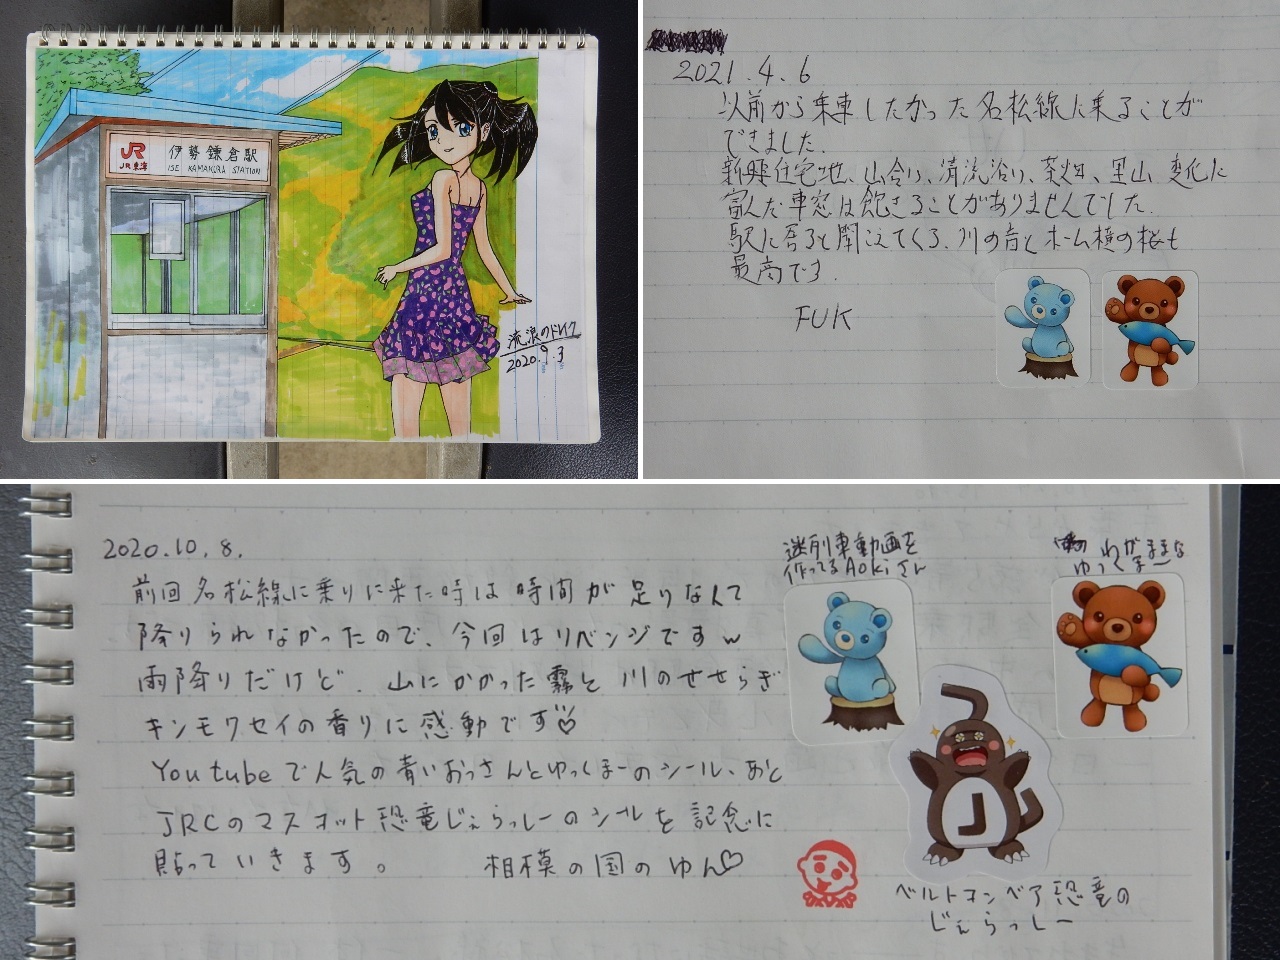 JR
JR東海
伊勢鎌倉駅
ISE KAMAKURA STATION
流浪のドレイク
2020.9.3
2021.4.6
以前から乗車したかった名松線に乗ることが
できました.
新興住宅地、山合い、清流沿い、茶畑、里山 変化に
富んだ車窓は飽きることがありませんでした.
駅に居ると聞こえてくる、川の音とホーム横の桜も
最高です.
FUK
2020.10.8.
前回名松線に乗りに来た時は時間が足りなんて
降りられなかったので、今回はリベンジですw
雨降りだけど、山にかかった霧と川のせせらぎ
キンモクセイの香りに感動です♡
Youtubeで人気の青いおっさんとゆっくまーのシール、あと
JRCのマスコット恐竜じぇらっしーのシールを記念に
貼っていきます。 相模の国のゆん♡
迷列車動画を
作ってるAokiさん
わがままな
ゆっくまー
J
ベルトコンベア恐竜の
じぇらっしー